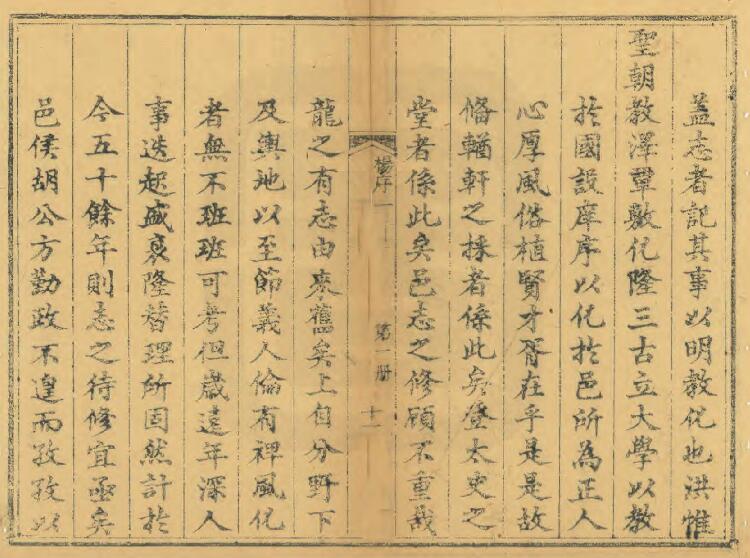 蓋志者記其事以明教化也洪惟
聖朝教澤覃敷化隆三古立大學以教
於國設庠序以化於邑所為正人
心厚風俗植賢才胥在乎是是故
偹輶軒之採者係此矣登太史之
堂者係此矣邑志之修顧不重哉
楊序一
第一册
十一
龍之有志由來舊矣上自分野下
及輿地以至節義人倫有裨風化
者無不班班可考但歲遠年深人
事迭起盛衰隆替理所固然計於
今五十餘年則志之待修宜亟矣
邑侯胡公方勤政不遑而孜孜以